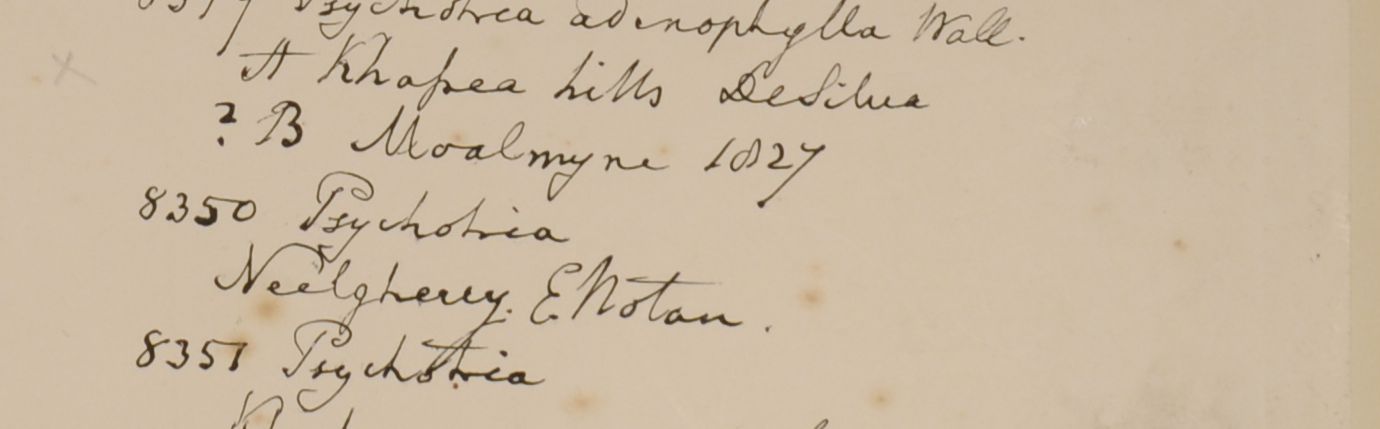 Psychotria adenophylla Wall.
A Khasea hills DeSilva
? B Moalmyne 1827
8350 Psychotria
Neelgherry. E Notan.
8351 Psychotria